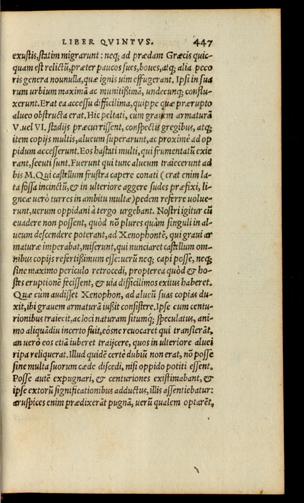 LIBER QVINTVS. 447
exustis, statim migrarunt: neq; ad prædam Græcis quic-
quam est relictū, præter paucos sues, boues, atq; alia peco
ris genera nonnulla, quæ ignis uim effugerant. Ipsi in sua
rum urbium maximā ac munitißimā, undecunq; conflu-
xerunt. Erat ea accessu difficilima, quippe quæ prærupto
alueo obstructa erat. Hic peltati, cum grauem armaturā
V. uel VI. stadijs præcurrissent, conspectis gregibus, atq;
item copijs multis, alueum superarunt, ac proxime ad op
pidum accesserunt. Eos hastati multi, qui frumentatū exie
rant, secuti sunt. Fuerunt qui tunc alueum traiecerunt ad
bis M. Qui castellum frustra capere conati (erat enim la-
ta fossa incinctū, & in ulteriore aggere sudes præfixi, li-
gneæ uerò turres in ambitu multæ) pedem referre uolue-
runt, uerum oppidani à tergo urgebant. Nostri igitur cū
euadere non possent, quòd nō plures quàm singuli in al-
ueum descendere poterant, ad Xenophontē, qui graui ar
maturæ imperabat, miserunt, qui nunciaret castellum om-
nibus copijs refertißimum esse: uerū neq; capi posse, neq;
sine maximo periculo retrocedi, propterea quòd & ho-
stes eruptionē fecissent, & uia difficilimos exitus haberet.
Quæ cum audisset Xenophon, ad alueū suas copias du-
xit, ibi grauem armaturā iußit consistere. Ipse cum centu-
rionibus traiecit, ac loci naturam situmq; speculatus, ani-
mo aliquādiu incerto fuit, eósne reuocaret qui transierāt,
an uerò eos etiā iuberet traijcere, quos in ulteriore aluei
ripa reliquerat. Illud quidē certè dubiū non erat, nō posse
sine multa suorum cæde discedi, nisi oppido potiti essent.
Posse autē expugnari, & centuriones existimabant, &
ipse extorū significationibus adductus, illis assentiebatur:
aruspices enim prædixerāt pugnā, uerū qualem optarēt,